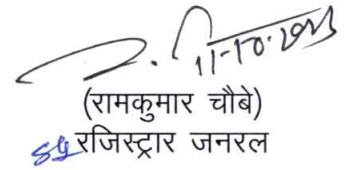 11-10-2023
(रामकुमार चौबे)
रजिस्ट्रार जनरल